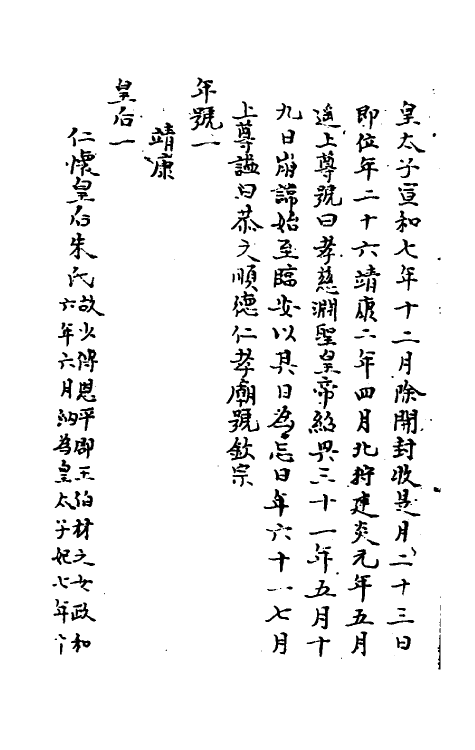 皇太子宣和七年十二月除開封牧是月二十三日
即位年二十六靖康二年四月北狩建炎元年五月
遥上尊號曰孝慈淵聖皇帝紹興三十一年五月十
九日崩諱始至臨安以其日為忌日年六十一七月
上尊謚曰恭文順德仁孝廟號欽宗
年號一
靖康
皇后一
仁懷皇后朱氏故少傅恩平郡王伯材之女政和
六年六月納為皇太子妃七年十